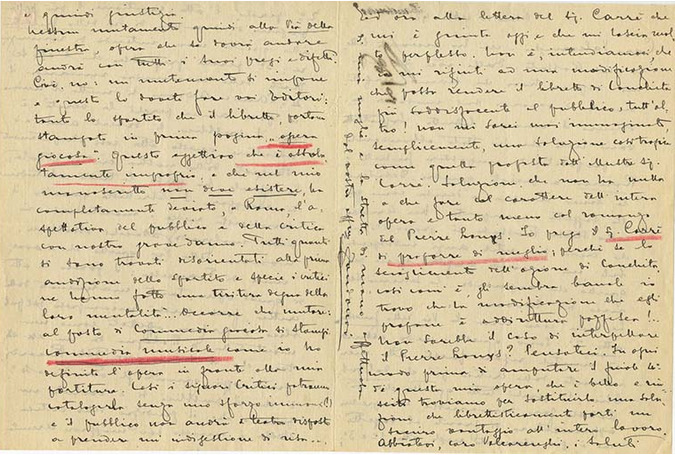 e quindi giustizia.
Nessun mutamento quindi alla Via della
finestra, opera che si dovrà andare
andrà con tutti i suoi pregi e difetti
Cioè, no: un mutamento si impone
e questo lo dovete fare voi Editori:
tanto lo spartito che il libretto, portan
stampato in prima pagina, "opera
giocosa". Questo aggettivo che è assolu
tamente improprio, e che nel mio
manoscritto non deve esistere, ha
completamente deviato, a Roma, l'a-
spettativa del pubblico e della critica
con nostro grave danno. Tutti quanti
si sono trovati disorientati alla prima
audizione dello spartito e specie i critici
ne hanno fatto una tiritera degna della
loro mentalità... Occorre che mutiate:
al posto di Commedia giocosa si stampi
commedia musicale come io ho
definito l'opera in fronte alla mia
partitura. Così i signori critici potranno
catalogarla senza uno sforzo immane(!)
e il pubblico non andrà a teatro disposto
a prendere un'indigestione di riso...
Ed ora alla lettera del Sig. Carré che
mi è giunta oggi e che mi lascia mol
to perplesso. Non è, intendiamoci, che
mi rifiuti ad una modificazione
che possa rendere il libretto di Conchita
più soddisfacente al pubblico, tutt'al
tro! non mi sarei mai immaginato,
semplicemente, una soluzione così tragica
com quella proposta dall'illustre Sig.
Carré. Soluzione che non ha nulla
a che fare col carattere dell'intera
opera e tanto meno col romanzo
del Pierre Louys. Io prego il Sig. Carré
di proporre di meglio; perché se lo
scioglimento dell'azione di Conchita
così com'è, gli sembra banale io
trovo che la modificazione che egli
propone è addirittura pazzesca!..
Non sarebbe il caso di interpellare
il Pierre Louys? Pensateci. In ogni
modo prima di amputare il finale
di questa mia opera, che è bello e riu-
scito troviamo per sostituirlo una solu-
zione che librettisticamente porti un
vantaggio all'intero lavoro.
Abbiatevi, caro Clausetti, i saluti